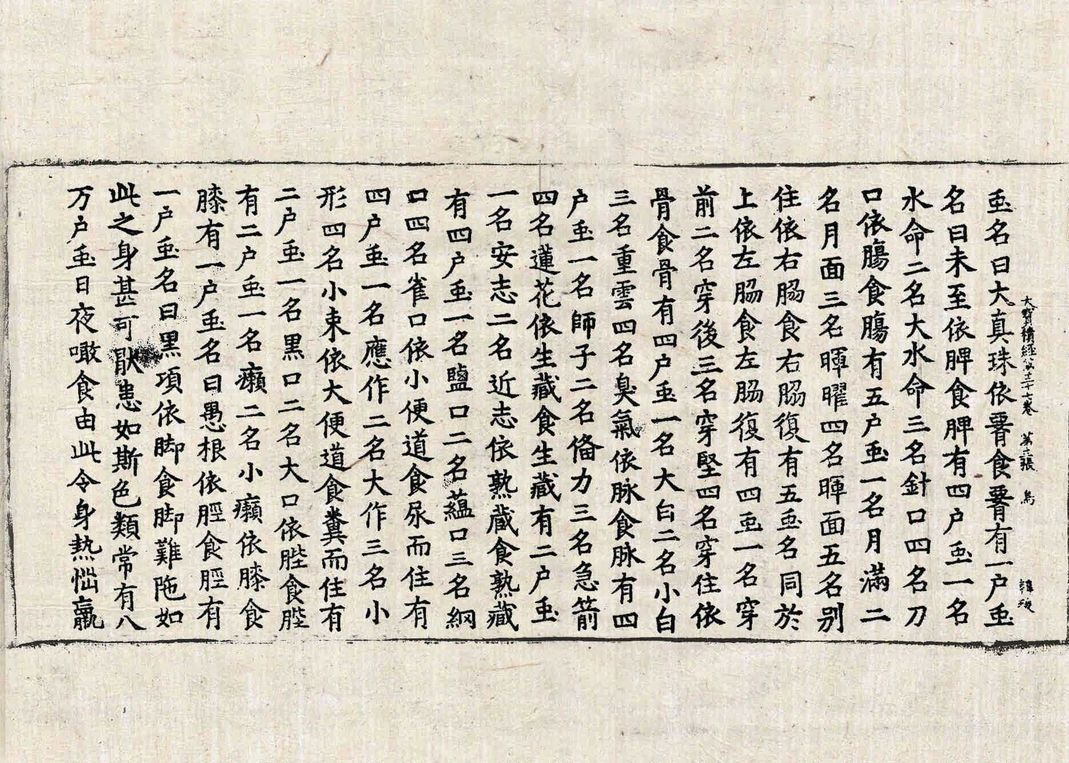 大寶積經 卷 張 鳥
䖝名曰大真珠依腎食腎有一户䖝
名曰未至依脾食脾有四户䖝一名
水命二名大水命三名針口四名刀
口依膓食膓有五户䖝一名月滿二
名月面三名暉曜四名暉面五名别
住依右脇食右脇復有五䖝名同於
上依左脇食左脇復有四䖝一名穿
前二名穿後三名穿堅四名穿住依
骨食骨有四户䖝一名大白二名小白
三名重雲四名臭氣依脉食脉有四
户䖝一名師子二名俻力三名急箭
四名蓮花依生藏食生藏有二户䖝
一名安志二名近志依熟藏食熟藏
有四户䖝一名鹽口二名蘊口三名綱
口四名雀口依小便道食尿而住有
四户䖝一名應作二名大作三名小
形四名小束依大便道食糞而住有
二户䖝一名黑口二名大口依䏶食䏶
有二户䖝一名癩二名小癩依膝食
膝有一户䖝名曰愚根依脛食脛有
一户䖝名曰黑項依脚食脚難陁如
此之身甚可猒患如斯色類常有八
万户䖝日夜噉食由此令身熱惱羸